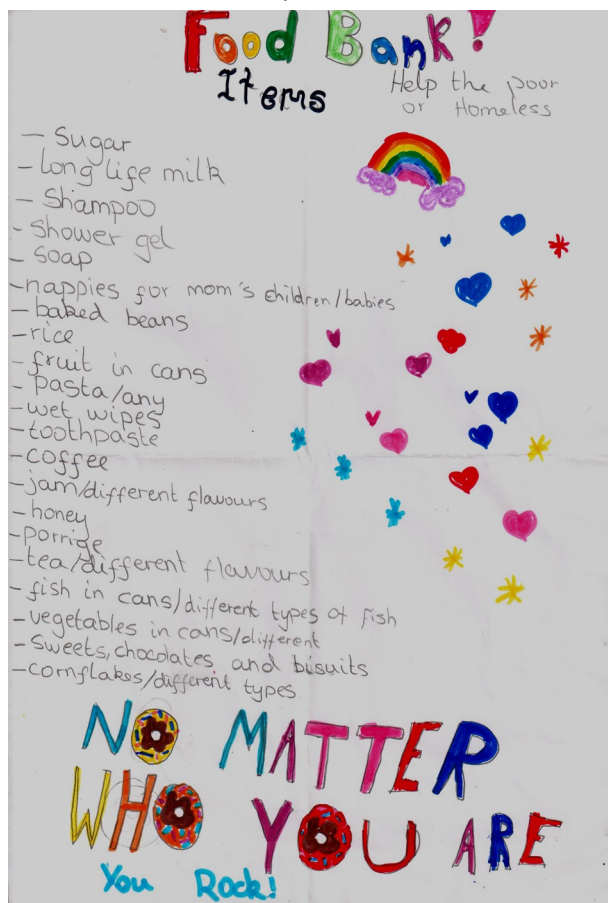 Food Bank!
Items
Help the poor
or Homeless
- Sugar
- long life milk
- Shampoo
- Shower gel
- Soap
- nappies for mom's children/babies
- baked beans
- rice
- fruit in cans
- Pasta/any
- wet wipes
- toothpaste
- coffee
- jam/different flavours
- honey
- porrige
- tea/different flavours
- fish in cans/different types of fish
- vegetables in cans/different
- Sweets, chocolates, and bisuits
- cornflakes/different types
NO MATTER
WHO YOU ARE
You Rock!